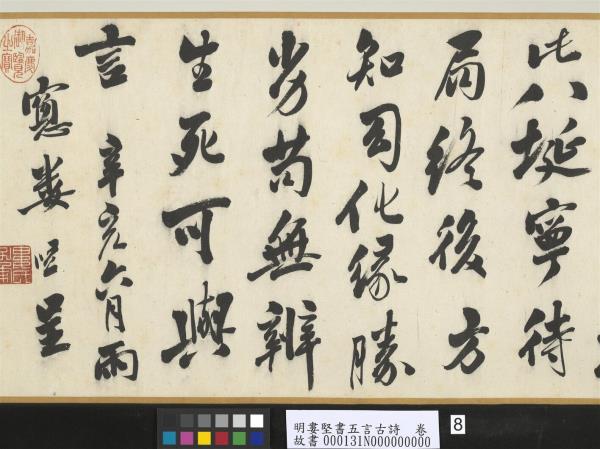 此八埏寧待
局終後方
知司化緣勝
劣苟無辨
生死可與
言 辛亥六月雨
窻婁堅呈
嘉慶御覽之寶
明婁堅書五言古詩 卷
故書000131N000000000
8